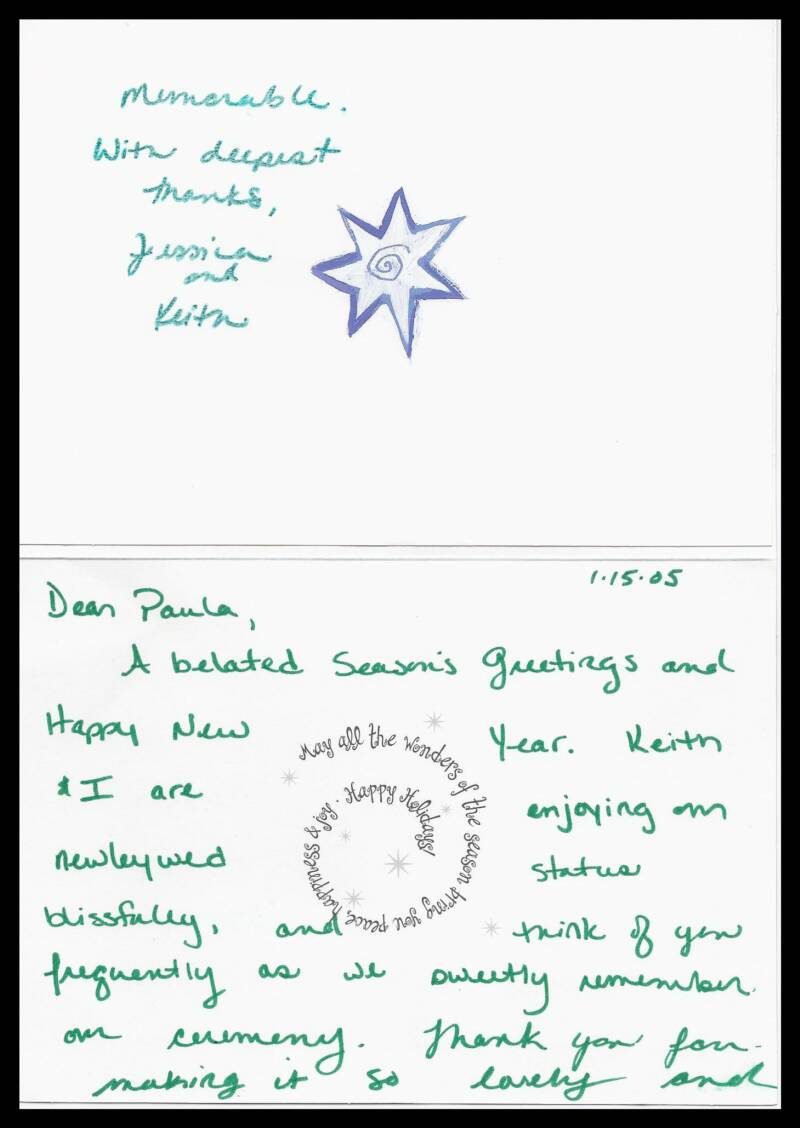 Memorable.
With deepest
thanks,
Jessica
and
Keith
1.15.05
Dear Paula,
A belated Season's Greetings and
Happy New Year. Keith
& I are enjoying our
newleywed status
blissfully, and think of you
frequently as we sweetly remember
our ceremony. Thank you for
making it so lovely and
May all the wonders of the season bring you peace, happiness & joy. Happy Holidays!